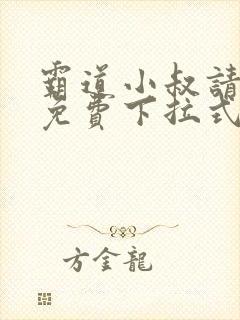 霸道小叔請
免費下拉式
方金龍